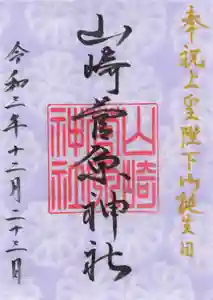 奉祝上皇陛下御誕生日
山崎菅原神社
山崎菅原神社
令和二年十二月二十三日